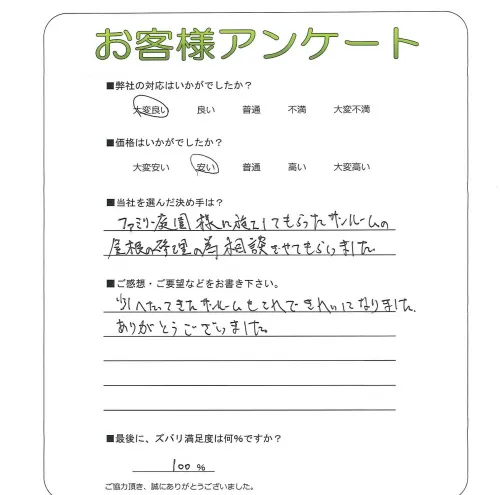 お客様アンケート
■弊社の対応はいかがでしたか?
大変良い 良い 普通 不満 大変不満
■価格はいかがでしたか?
大変安い 安い 普通 高い 大変高い
■当社を選んだ決め手は?
ファミリー庭園様に施工してもらったサンルームの
屋根の修理の為相談させてもらいました
■ご感想・ご要望などをお書き下さい。
へたってきたサンルームもこれできれいになりました.
ありがとうございました。
■最後に、ズバリ満足度は何%ですか?
100 %
ご協力頂き、誠にありがとうございました。